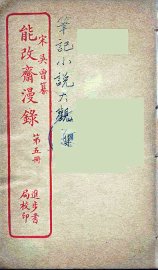 宋吳曾纂
能改齋漫錄
第五册
進步書
局校印
筆記小說大觀